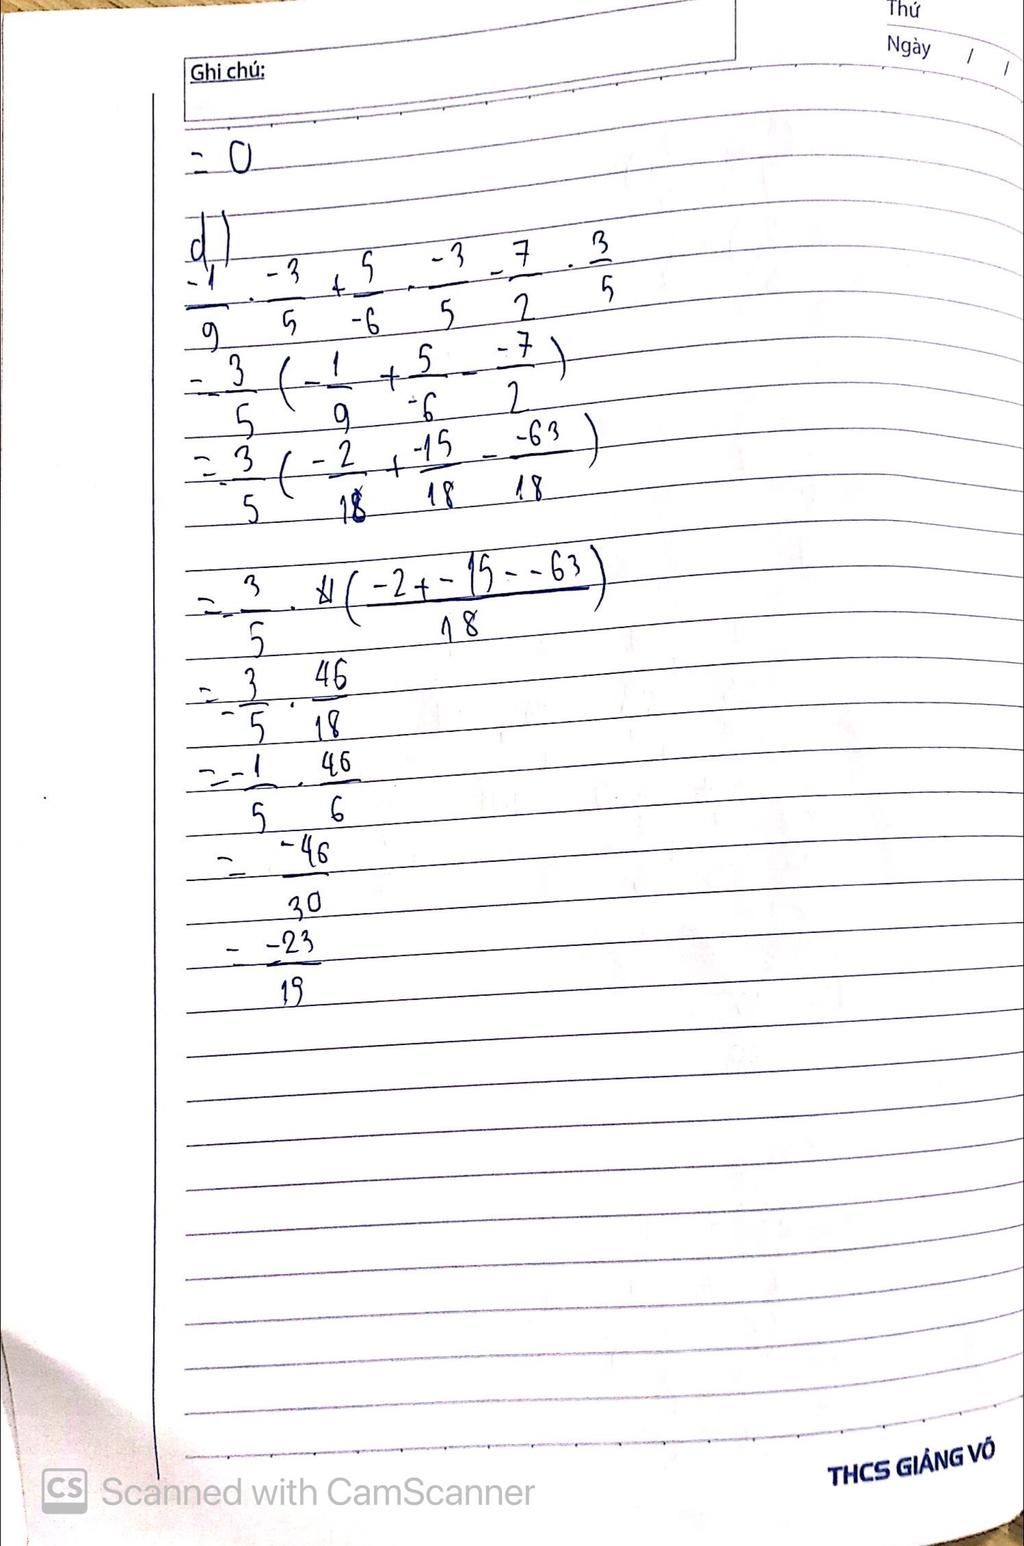 Thứ
Ngày / /
Ghi chú:
= 0
d)
-1/9 . -3/5 + 5/-6 . -3/5 - 7/2 . 3/5
= -3/5 (-1/9 + 5/-6 - -7/2)
= -3/5 (-2/18 + -15/18 - -63/18)
= -3/5 . ((-2 + -15 - -63)/18)
= -3/5 . 46/18
= -1/5 . 46/6
= -46/30
= -23/15
THCS GIẢNG VÕ
CS Scanned with CamScanner